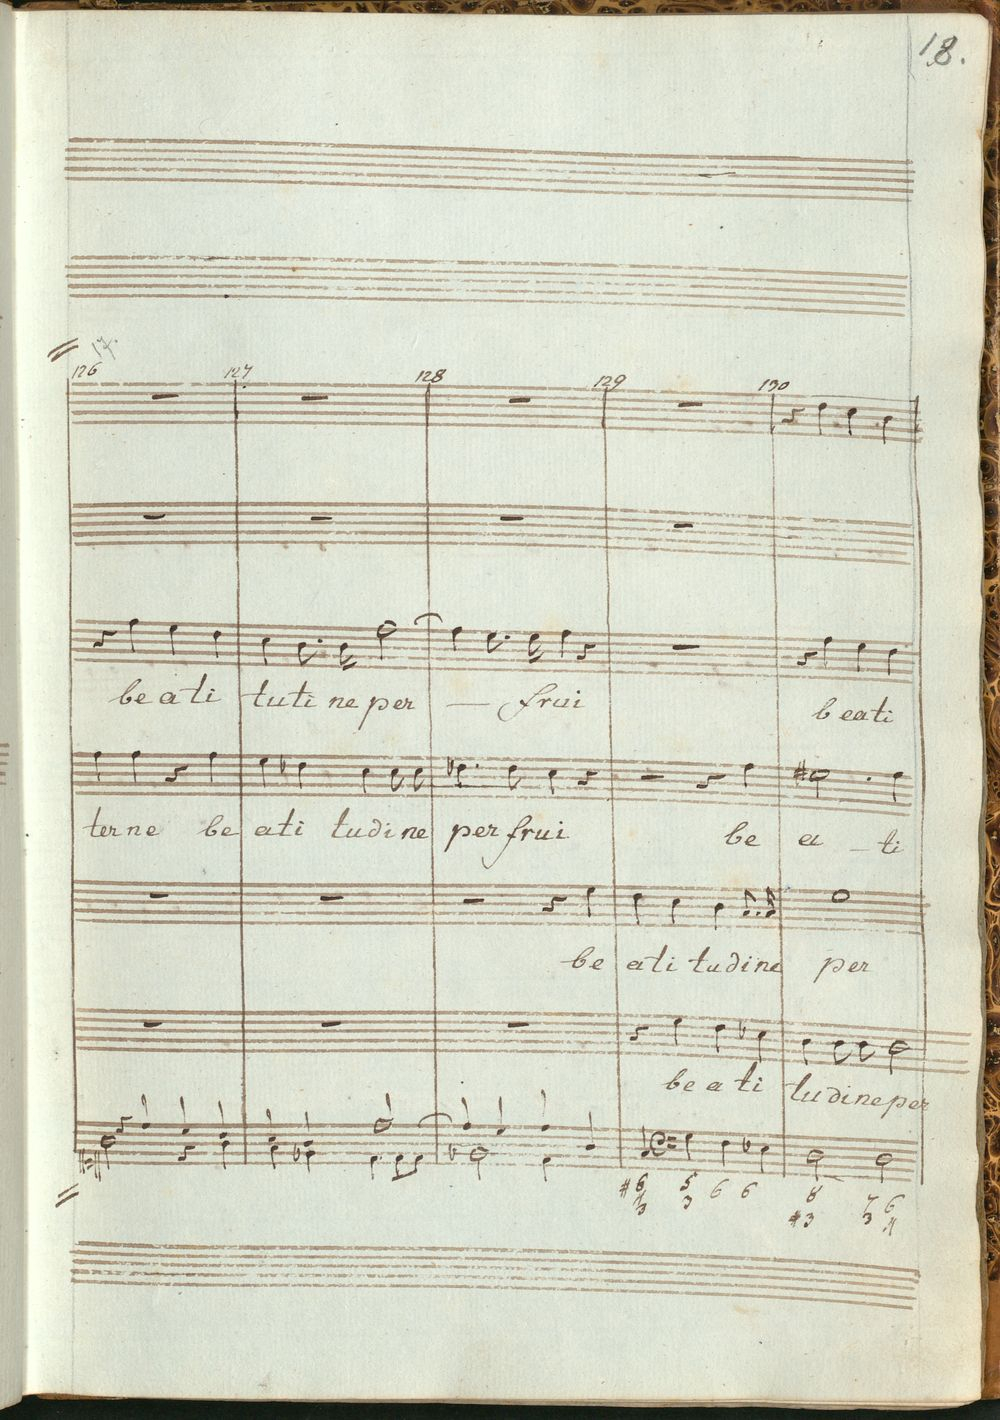 18.
17.
126 127 128 129 130
be ati tuti ne per — frui beati
terne be ati tudi ne per frui be a – ti
be ati tudine per
be a ti tudine per
#6 5 6 6 8 7 6
4 3 #3 3 4
3